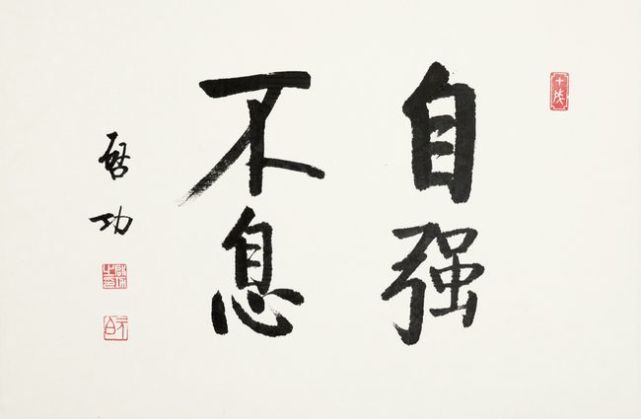 自强
不息
启功